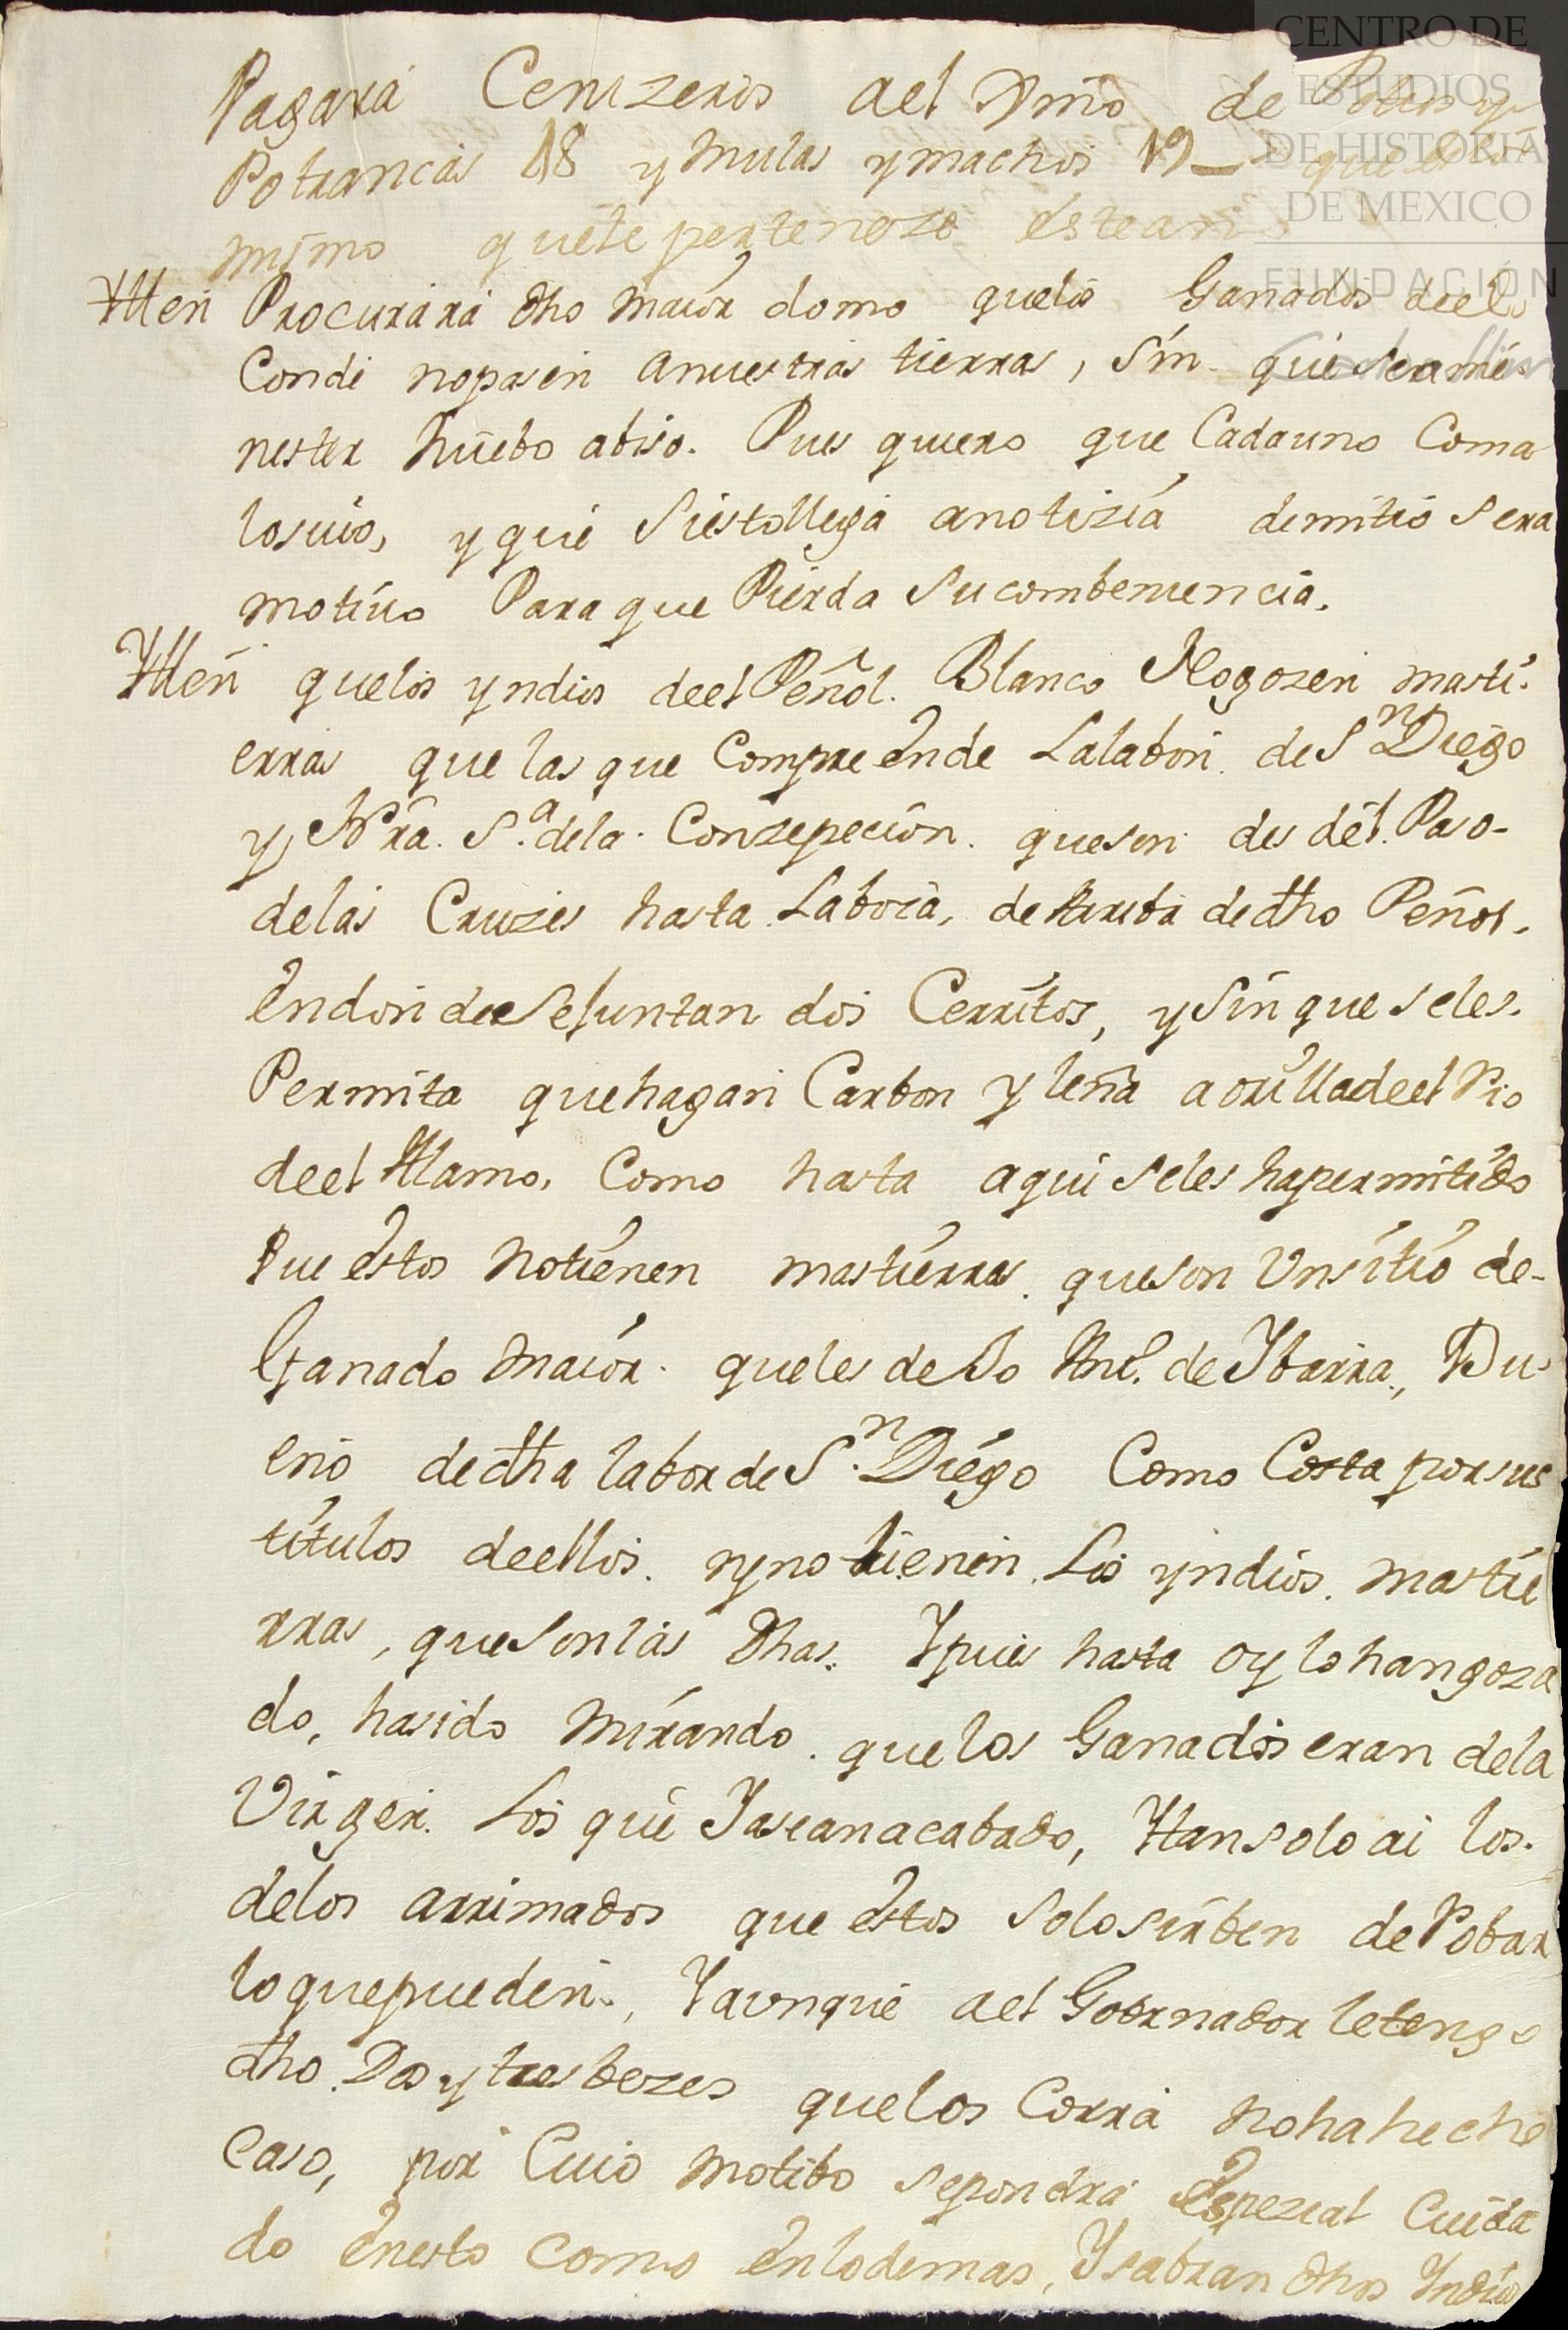 CENTRO DE
ESTUDIOS
DE HISTORIA
DE MEXICO
FUNDACIÓN
Pagará Cenizeros ael Dmõ de
Potrancas 18 y Mulas y machos 19
mismo quele pertenezo este
Ytten Procurará dho Maior domo quelos Ganados deel
Conde nopasen anuestras tierras, sin que sera me-
nester Nuebo abiso. Pues quiero que Cadauno Coma
losuio, y que Siestollega anotizia demitio Sera
motiuo Paraque Pierda Sucombeniencia.
Ytten quelos yndios deel Peñol. Blanco Nogozen masti-
erras que las que Compreende Lalabor de Sn Diego
y Nra. Sa. dela Conzepcion. queson des del. Paso-
delas Cruzes hasta Laboca, de Arriba de dho Peñol.
Endonde Sejuntan dos Cerritos, y Sin que seles.
Permita quehagan Carbon y leña aorilladeel Rio
deel Alamo, Como hasta aqui Seles hapermitido
Pue estos Notienen mastierras. queson Unsitio de-
Ganado Maior. queles dexo Ml. de Ybarra, Du-
eño de dha labor de Sn. Diego Como Costa porsus
titulos deellos. y no tienen Los yndios. mastie
rras, queSonlas Dhas. Y pues hasta oy lo hangoza
do, hasido Mirando. que los Ganados eran dela
Virgen. Los que Yaseanacabado, Y tan solo ai los.
delos arrimados que estos Solosirben de Robar
loquepueden., Yaunque ael Gobernador letengo
dho Dos y tres bezes quelos Corra Nohahecho
Caso, por Cuio Motibo Sepondra Espezial Cuida
do Enesto Como Enlodemas, Ysabran dhos Yndios